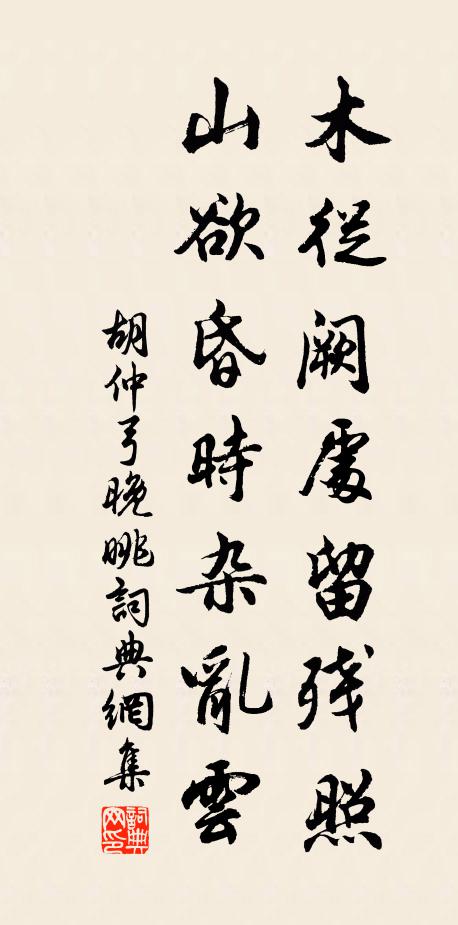 木從闕處留残照
山欲昏時杂亂雲
胡仲弓晚眺詞典網集
詞典網印